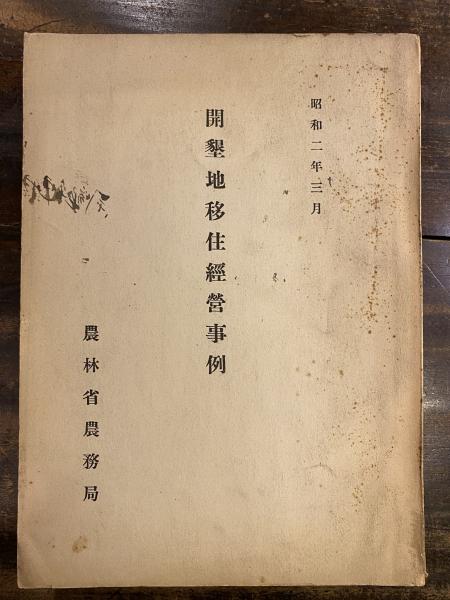 昭和二年三月
開墾地移住經營事例
農林省農務局